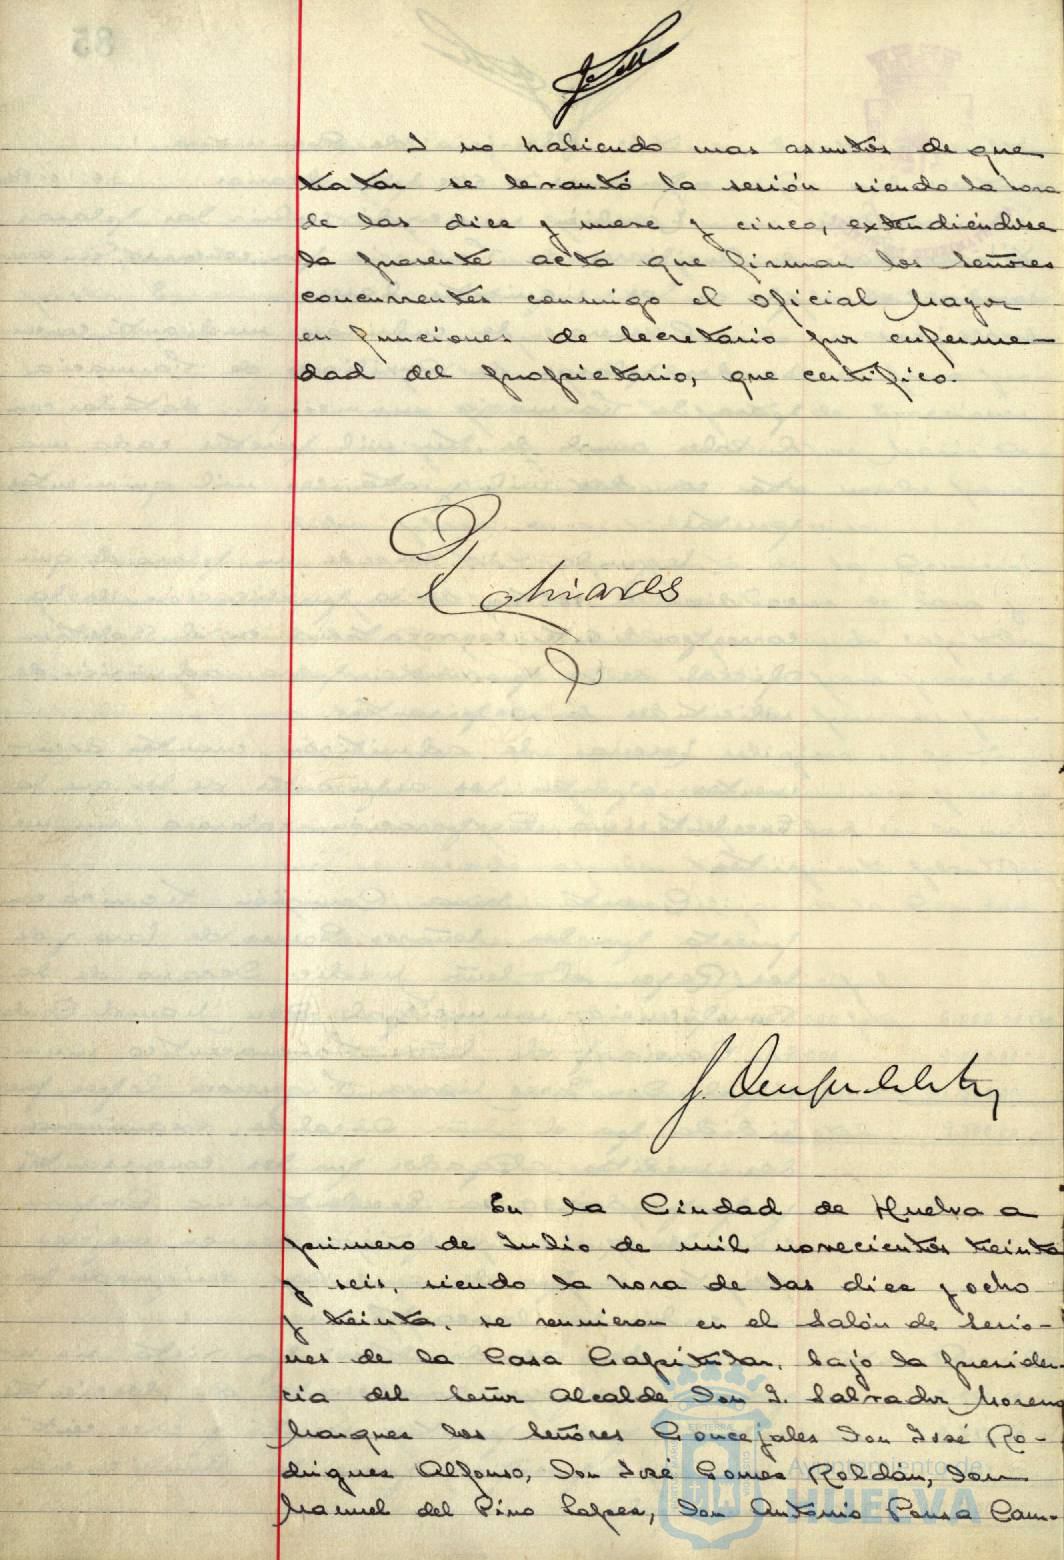 Y no habiendo mas asuntos de que
tratar se levantó la sesión siendo la hora
de las diez y nueve y cinco, extendiéndose
la presente acta que firman los señores
concurrentes conmigo el oficial Mayor
en funciones de Secretario por enferme-
dad del propietario, que certifico.
En la Ciudad de Huelva a
primero de Julio de mil novecientos treinta
y seis, siendo la hora de las diez y ocho
y treinta, se reunieron en el Salón de Sesio-
nes de la Casa Capitular, bajo la presiden-
cia del Señor Alcalde Don J. Salvador Moreno
Marquez los Señores Concejales Don José Ro-
driguez Alfonso, Don José Gomez Roldán, Don
Manuel del Pino Lopez, Don Antonio Ponsa Cam-
Ayuntamiento de
HUELVA